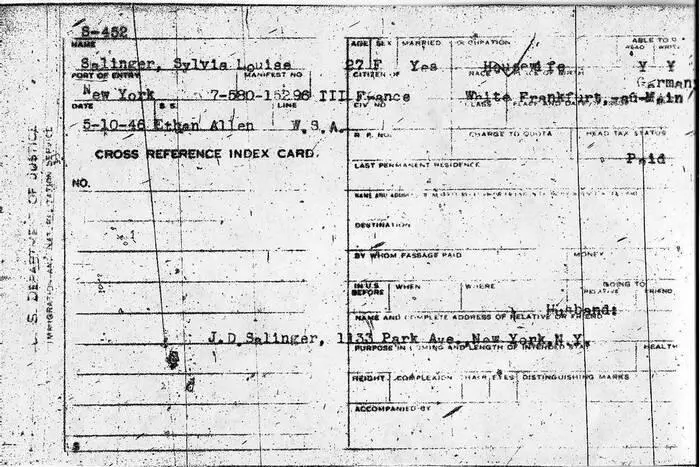 S-452
NAME
Salinger, Sylvia Louise
PORT OF ENTRY MANIFEST NO.
New York 7-580-15296 III
DATE S. S. LINE
5-10-46 Ethan Allen W.S.A.
CROSS REFERENCE INDEX CARD.
NO.
U. S. DEPARTMENT OF JUSTICE
IMMIGRATION AND NATURALIZATION SERVICE
AGE SEX MARRIED OCCUPATION ABLE TO
READ WRITE
27 F Yes Housewife Y Y
CITIZEN OF RACE PLACE OF BIRTH German
France White Frankfurt,
CLASS
CHARGE TO QUOTA HEAD TAX STATUS
Paid
LAST PERMANENT RESIDENCE
DESTINATION
BY WHOM PASSAGE PAID MONEY
IN U.S. BEFORE WHEN WHERE GOING TO
RELATIVE FRIEND
Husband:
NAME AND COMPLETE ADDRESS OF RELATIVE OR FRIEND
J.D.Salinger, 1133 Park Ave. New York,N.Y.
PURPOSE IN COMING AND LENGTH OF INTENDED STAY HEALTH
HEIGHT COMPLEXION HAIR EYES DISTINGUISHING MARKS
ACCOMPANIED BY